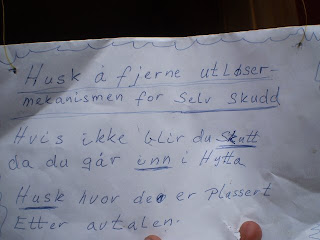 Husk å fjerne utløser-
mekanismen for Selv Skudd
Hvis ikke blir du Skutt
da du går inn i Hytta
Husk hvor de er Plassert
Etter avtalen.